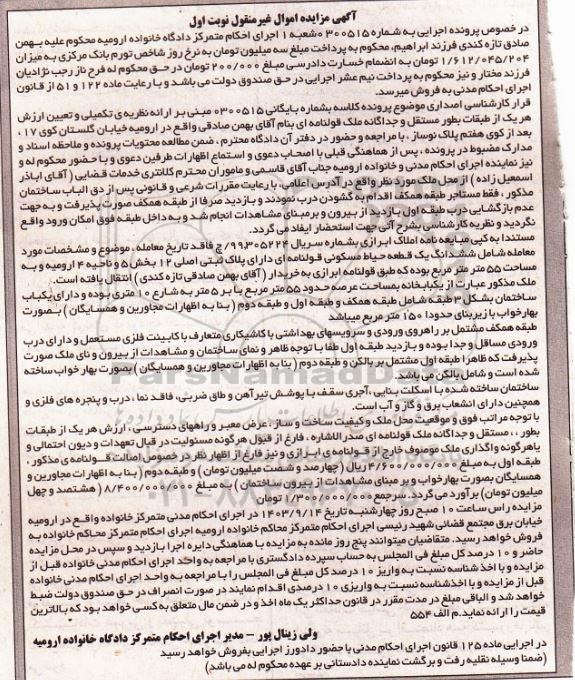 آگهی مزایده اموال غیرمنقول نوبت اول
در خصوص پرونده اجرایی به شماره ۳۰۰۵۱۵ شعبه ۱ اجرای احکام متمرکز دادگاه خانواده ارومیه محکوم علیه بهمن
صادق تازه کندی فرزند ابراهیم، محکوم به پرداخت مبلغ سه میلیون تومان به نرخ روز شاخص تورم بانک مرکزی به میزان
۱/۶۱۲/۰۴۵/۲۰۴ تومان به انضمام خسارت دادرسی مبلغ ۲۰۰/۰۰۰ تومان در حق محکوم له فرح ناز رجب نژادیان
فرزند مختار و نیز محکوم به پرداخت نیم عشر اجرایی در حق صندوق دولت می باشد و با رعایت ماده ۱۲۲ و ۵۱ از قانون
اجرای احکام مدنی به فروش میرسد.
قرار کارشناسی اصداری موضوع پرونده کلاسه بشماره بایگانی ۰۳۰۰۵۱۵ مبنی بر ارائه نظریه ی تکمیلی و تعیین ارزش
هر یک از طبقات بطور مستقل و جداگانه ملک قولنامه ای بنام آقای بهمن صادقی واقع در ارومیه خیابان گلستان کوی ۱۷ ،
بعد از کوی هفتم پلاک نوساز ، با مراجعه و حضور در دفتر آن دادگاه محترم ، ضمن مطالعه محتویات پرونده و ملاحظه اسناد و
مدارک مضبوط در پرونده ، پس از هماهنگی قبلی با اصحاب دعوی و استماع اظهارات طرفین دعوی و با حضور محکوم له و
نیز نماینده اجرای احکام مدنی و خانواده ارومیه جناب آقای قاسمی و ماموران محترم کلانتری خدمات قضایی ( آقای اباذر
اسمعیل زاده ) از محل ملک مورد نظر واقع در آدرس اعلامی، با رعایت مقررات شرعی و قانونی پس از دق الباب ساختمان
مذکور ، فقط مستاجر طبقه همکف اقدام به گشودن درب نمودند و بازدید صرفا از طبقه همکف صورت پذیرفت و به جهت
عدم بازگشایی درب طبقه اول بازدید از بیرون و بر مبنای مشاهدات انجام شد و به داخل طبقه فوق امکان ورود واقع
نگردید و نظریه کارشناسی بشرح آتی جهت استحضار ایفاد می گردد.
مستندا به کپی مبایعه نامه املاک ابرازی بشماره سریال ۹۹,۳۰۵۲۲۴/ج فاقد تاریخ معامله ، موضوع و مشخصات مورد
معامله شامل ششدانگ یک قطعه حیاط مسکونی قولنامه ای دارای پلاک ثبتی اصلی ۱۲ بخش ۵ و ناحیه ۴ ارومیه و به
مساحت ۵۵ متر متر مربع بوده که طبق قولنامه ابرازی به خریدار ( آقای بهمن صادقی تازه کندی ) انتقال یافته است.
ملک مذکور عبارت از یکبابخانه بمساحت عرصه حدود ۵۵ متر مربع با بر ۵ متر به شارع ۱۰ متری بوده و دارای یکباب
ساختمان بشکل ۳ طبقه شامل طبقه همکف و طبقه اول و طبقه دوم ( بنا به اظهارات مجاورین و همسایگان ) بصورت
بهارخواب با زیربنای حدودا ۱۵۰ متر مربع میباشد
طبقه همکف مشتمل بر راهروی ورودی و سرویسهای بهداشتی با کاشیکاری متعارف با کابینت فلزی مستعمل و دارای درب
ورودی مساقل و جدا بوده و بازدید طبقه اول طفا با توجه ظاهر و نمای ساختمان و مشاهدات از بیرون و نای ملک صورت
پذیرفت که ظاهرا طبقه اول مشتمل بر بالکن و طبقه دوم ( بنا به اظهارات مجاورین و همسایگان ) بصورت بهار خواب ساخته
شده است و شامل بالکن می باشد
ساختمان ساخته شده با اسکلت بنایی ، آجری سقف با پوشش تیرآهن و طاق ضربی، فاقد نما ، درب و پنجره های فلزی و
همچنین دارای انشعاب برق و گاز و آب است.
با توجه مراتب فوق و موقعیت محل ملک و کیفیت ساخت و ساز ، عرض معبر و راههای دسترسی ، ارزش هر یک از طبقات
بطور ، ، مستقل و جداگانه ملک قولنامه ای صدرالاشاره ، فارغ از قبول هرگونه مسئولیت در قبال تعهدات و دیون احتمالی و
یاهرگونه واگذاری مال موصوف خارج از قولنامه ی ابرازی و نیز فارغ از اظهار نظر در خصوص اصالت قولنامه ی مذکور ،
طبقه اول به مبلغ ۴/۶۰۰/۰۰۰/۰۰۰ ریال ( چهارصد و شصت میلیون تومان ) و طبقه دوم ( بنا به اظهارات مجاورین و
همسایگان بصورت بهارخواب و بر مبنای مشاهدات از بیرون ساختمان ) به مبلغ ۸/۴۰۰/۰۰۰/۰۰۰ ( هشتصد و چهل
میلیون تومان) برآورد می گردد. سرجمع ۱/۳۰۰/۰۰۰/۰۰۰ تومان
مزایده راس ساعت ۱۰ صبح روز چهارشنبه تاریخ ۱۴۰۳/۹/۱۴ در اجرای احکام مدنی متمرکز خانواده واقع در ارومیه
خیابان برق مجتمع قضائی شهید رئیسی اجرای احکام متمرکز محاکم خانواده ارومیه اجرای احکام متمرکز محاکم خانواده به
فروش خواهد رسید. متقاضیان میتوانند پنج روز مانده به مزایده با هماهنگی دایره اجرا بازدید و سپس در محل مزایده
حاضر و ۱۰ درصد کل مبلغ فی المجلس به حساب سپرده دادگستری با مراجعه به واحد اجرای احکام مدنی خانواده قبل از
مزایده و با اخذ شناسه نسبت به واریز ۱۰ درصد کل مبلغ فی المجلس را با مراجعه به واحد اجرای احکام مدنی خانواده
قبل از مزایده و با اخذ شناسه نسبت به واریزی ۱۰ درصدی اقدام نمایند در صورت انصراف در حق صندوق دولت ضبط
خواهد شد و الباقی مبلغ در مدت مقرر در قانون حداکثر یک ماه اخذ و در ضمن مال متعلق به کسی خواهد بود که بالاترین
قیمت را ارائه نماید.م الف ۵۵۴
ولی زینال پور - مدیر اجرای احکام متمرکز دادگاه خانواده ارومیه
در اجرایی ماده ۱۲۵ قانون اجرای احکام مدنی با حضور دادورز اجرایی بفروش خواهد رسید
(ضمنا وسیله نقلیه رفت و برگشت نماینده دادستانی بر عهده محکوم له می باشد)